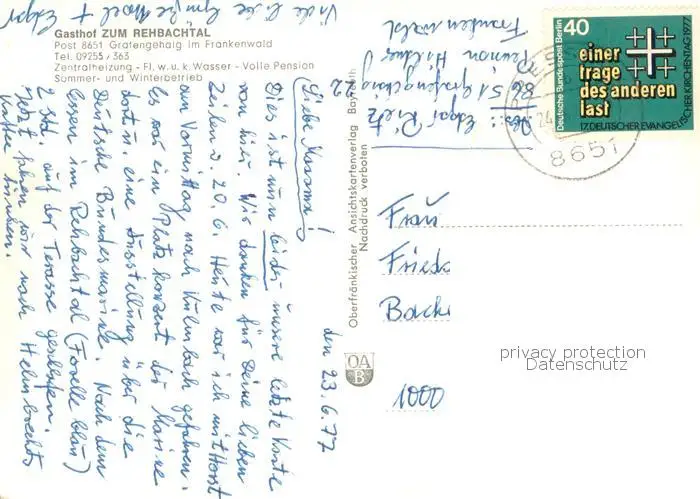 Gasthof ZUM REHBACHTAL
Post 8651 Grafengehaig im Frankenwald
Tel. 09255 / 363
Zentralheizung - Fl. w. u. k. Wasser - Volle Pension
Sommer- und Winterbetrieb
den 23.6.77
Liebe Mamma!
Dies ist nun leider unsere letzte Karte
von hier. Wir danken für Deine lieben
Zeilen v. 20.6. Heute war ich mit Horst
am Vormittag nach Kulmbach gefahren.
Es war ein Platzkonzert der Marine
dort u. eine Ausstellung über die
Deutsche Bundesmarine. Nach dem
Essen im Rehbachtal (Forelle blau)
2 Std. auf der Terasse geschlafen.
Jetzt fahren wir nach Helmbrechts
Kaffee trinken.
Viele liebe Grüße + Edgar
Abs.: Edgar Dietz
8651 Grafengehaig 22
Pension Hildner
Frankenwald
Oberfränkischer Ansichtskartenverlag Bayreuth
Nachdruck verboten
OA
B
Deutsche Bundespost Berlin
40
einer
trage
des anderen
last
17. DEUTSCHER EVANGELISCHER KIRCHENTAG 1977
8651
Frau
Fried
Bach
1000
privacy protection
Datenschutz